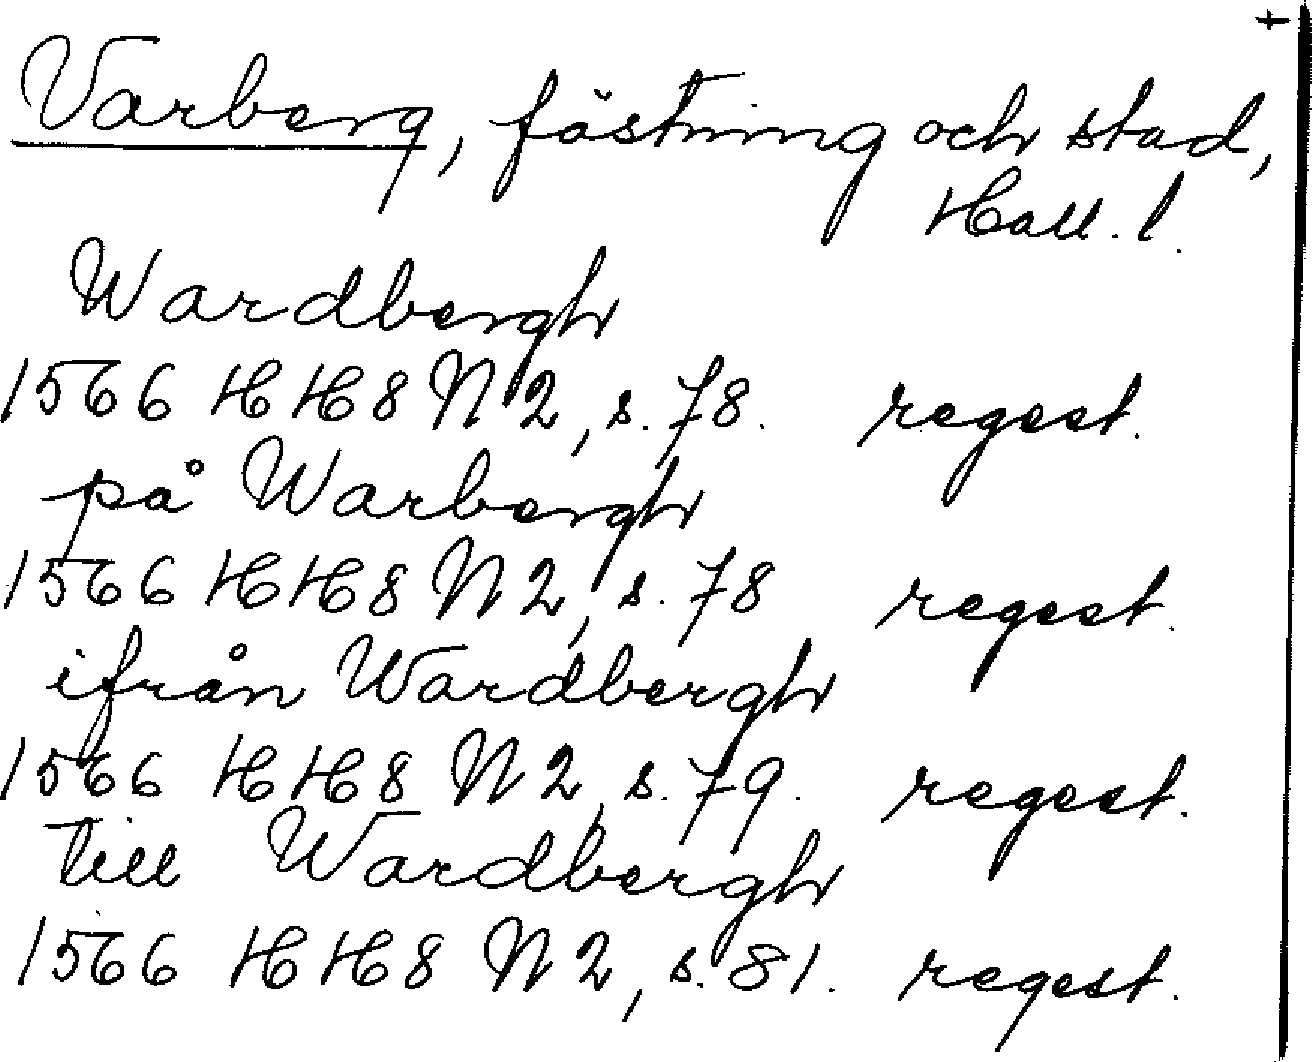 t
Varberg, fästning och stad,
Hall. l.
Wardbergh
1566 HH8 N 2, s. 78. regest.
på Warbergh
1566 HH8 N 2, s. 78 regest.
ifrån Wardbergh
1566 HH8 N 2, s. 79. regest.
till Wardbergh
1566 HH8 N 2, s. 81. regest.